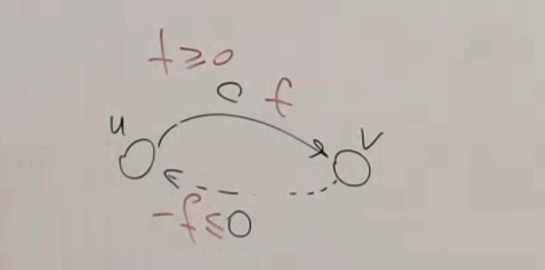 f ≥ 0
c f
u
v
-f ≤ 0